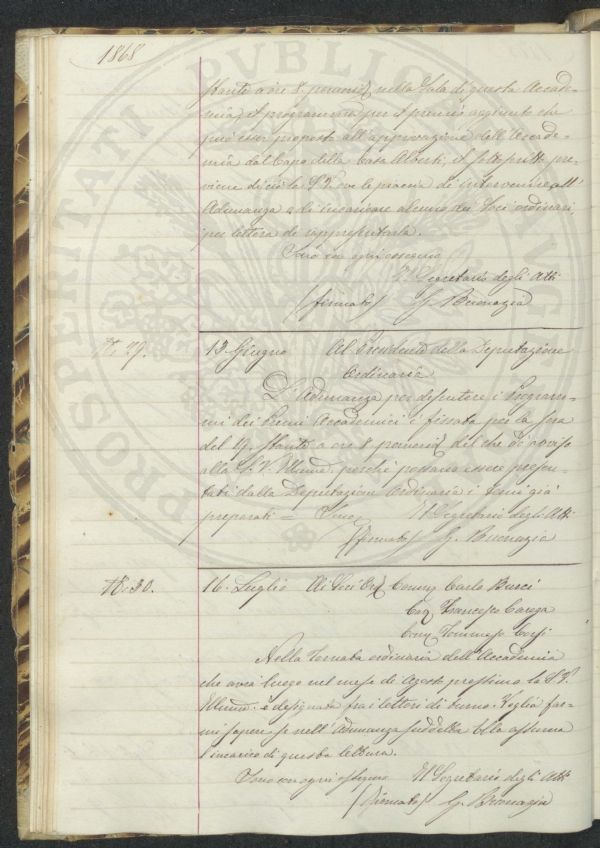 1868
stante a ore 8. pomerid. nella Sala di questa Accade-
mia, il programma per il premio aggiunto che
può esser proposto all'approvazione dell'Accade-
mia dal Capo della Casa Alberti, il sottoscritto pre-
viene di ciò la S. V. ove le piaccia di intervenire all'
Adunanza o di incaricare alcuno dei Soci ordinari
per lettera di rappresentarla.
Sono con ogni ossequio
Il Segretario degli Atti
(firmato) G. Buonazia
N. 29.
13 Giugno Al Presidente della Deputazione
Ordinaria
L'Adunanza per discutere i Program-
mi dei Premi Accademici è fissata per la sera
del 19. stante a ore 8 pomerid. del che do avviso
alla S. V. Illma. perché possano essere presen-
tati dalla Deputazione Ordinaria i temi già
preparati = Sono Il Segretario degli Atti
(firmato) G. Buonazia
N. 30.
16. Luglio Ai Soci Comm. Carlo Burci
Francesco Carega
Comm. Tommaso Corsi
Nella Tornata ordinaria dell'Accademia
che avrà luogo nel mese di Agosto prossimo la S. V.
Illma. è designata fra i lettori di turno. Voglia far-
mi sapere se nell'Adunanza suddetta Ella assuma
l'incarico di questa lettura.
Sono con ogni ossequio Il Segretario degli Atti
(firmato) G. Buonazia
PROSPERITATI PUBLICAE